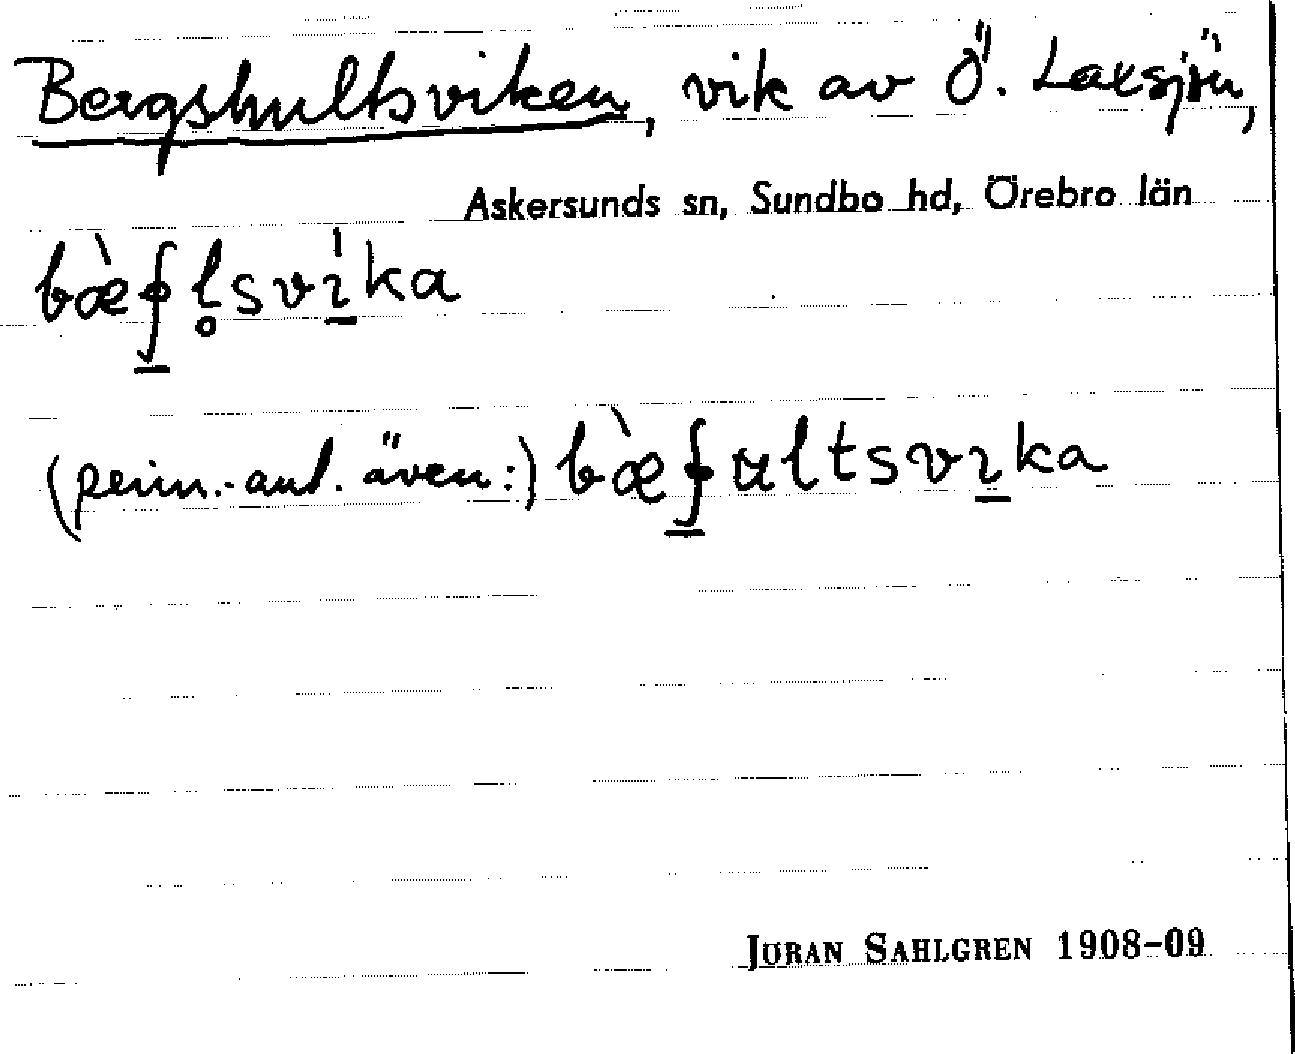 Bergshultsviken, vik av Ö. Laxsjön,
Askersunds sn, Sundbo hd, Örebro län
bæ̀ʄl̥svı̍ka
(prim.-aul. även:) bæ̀ʄultsvıka
JÖRAN SAHLGREN 1908–09